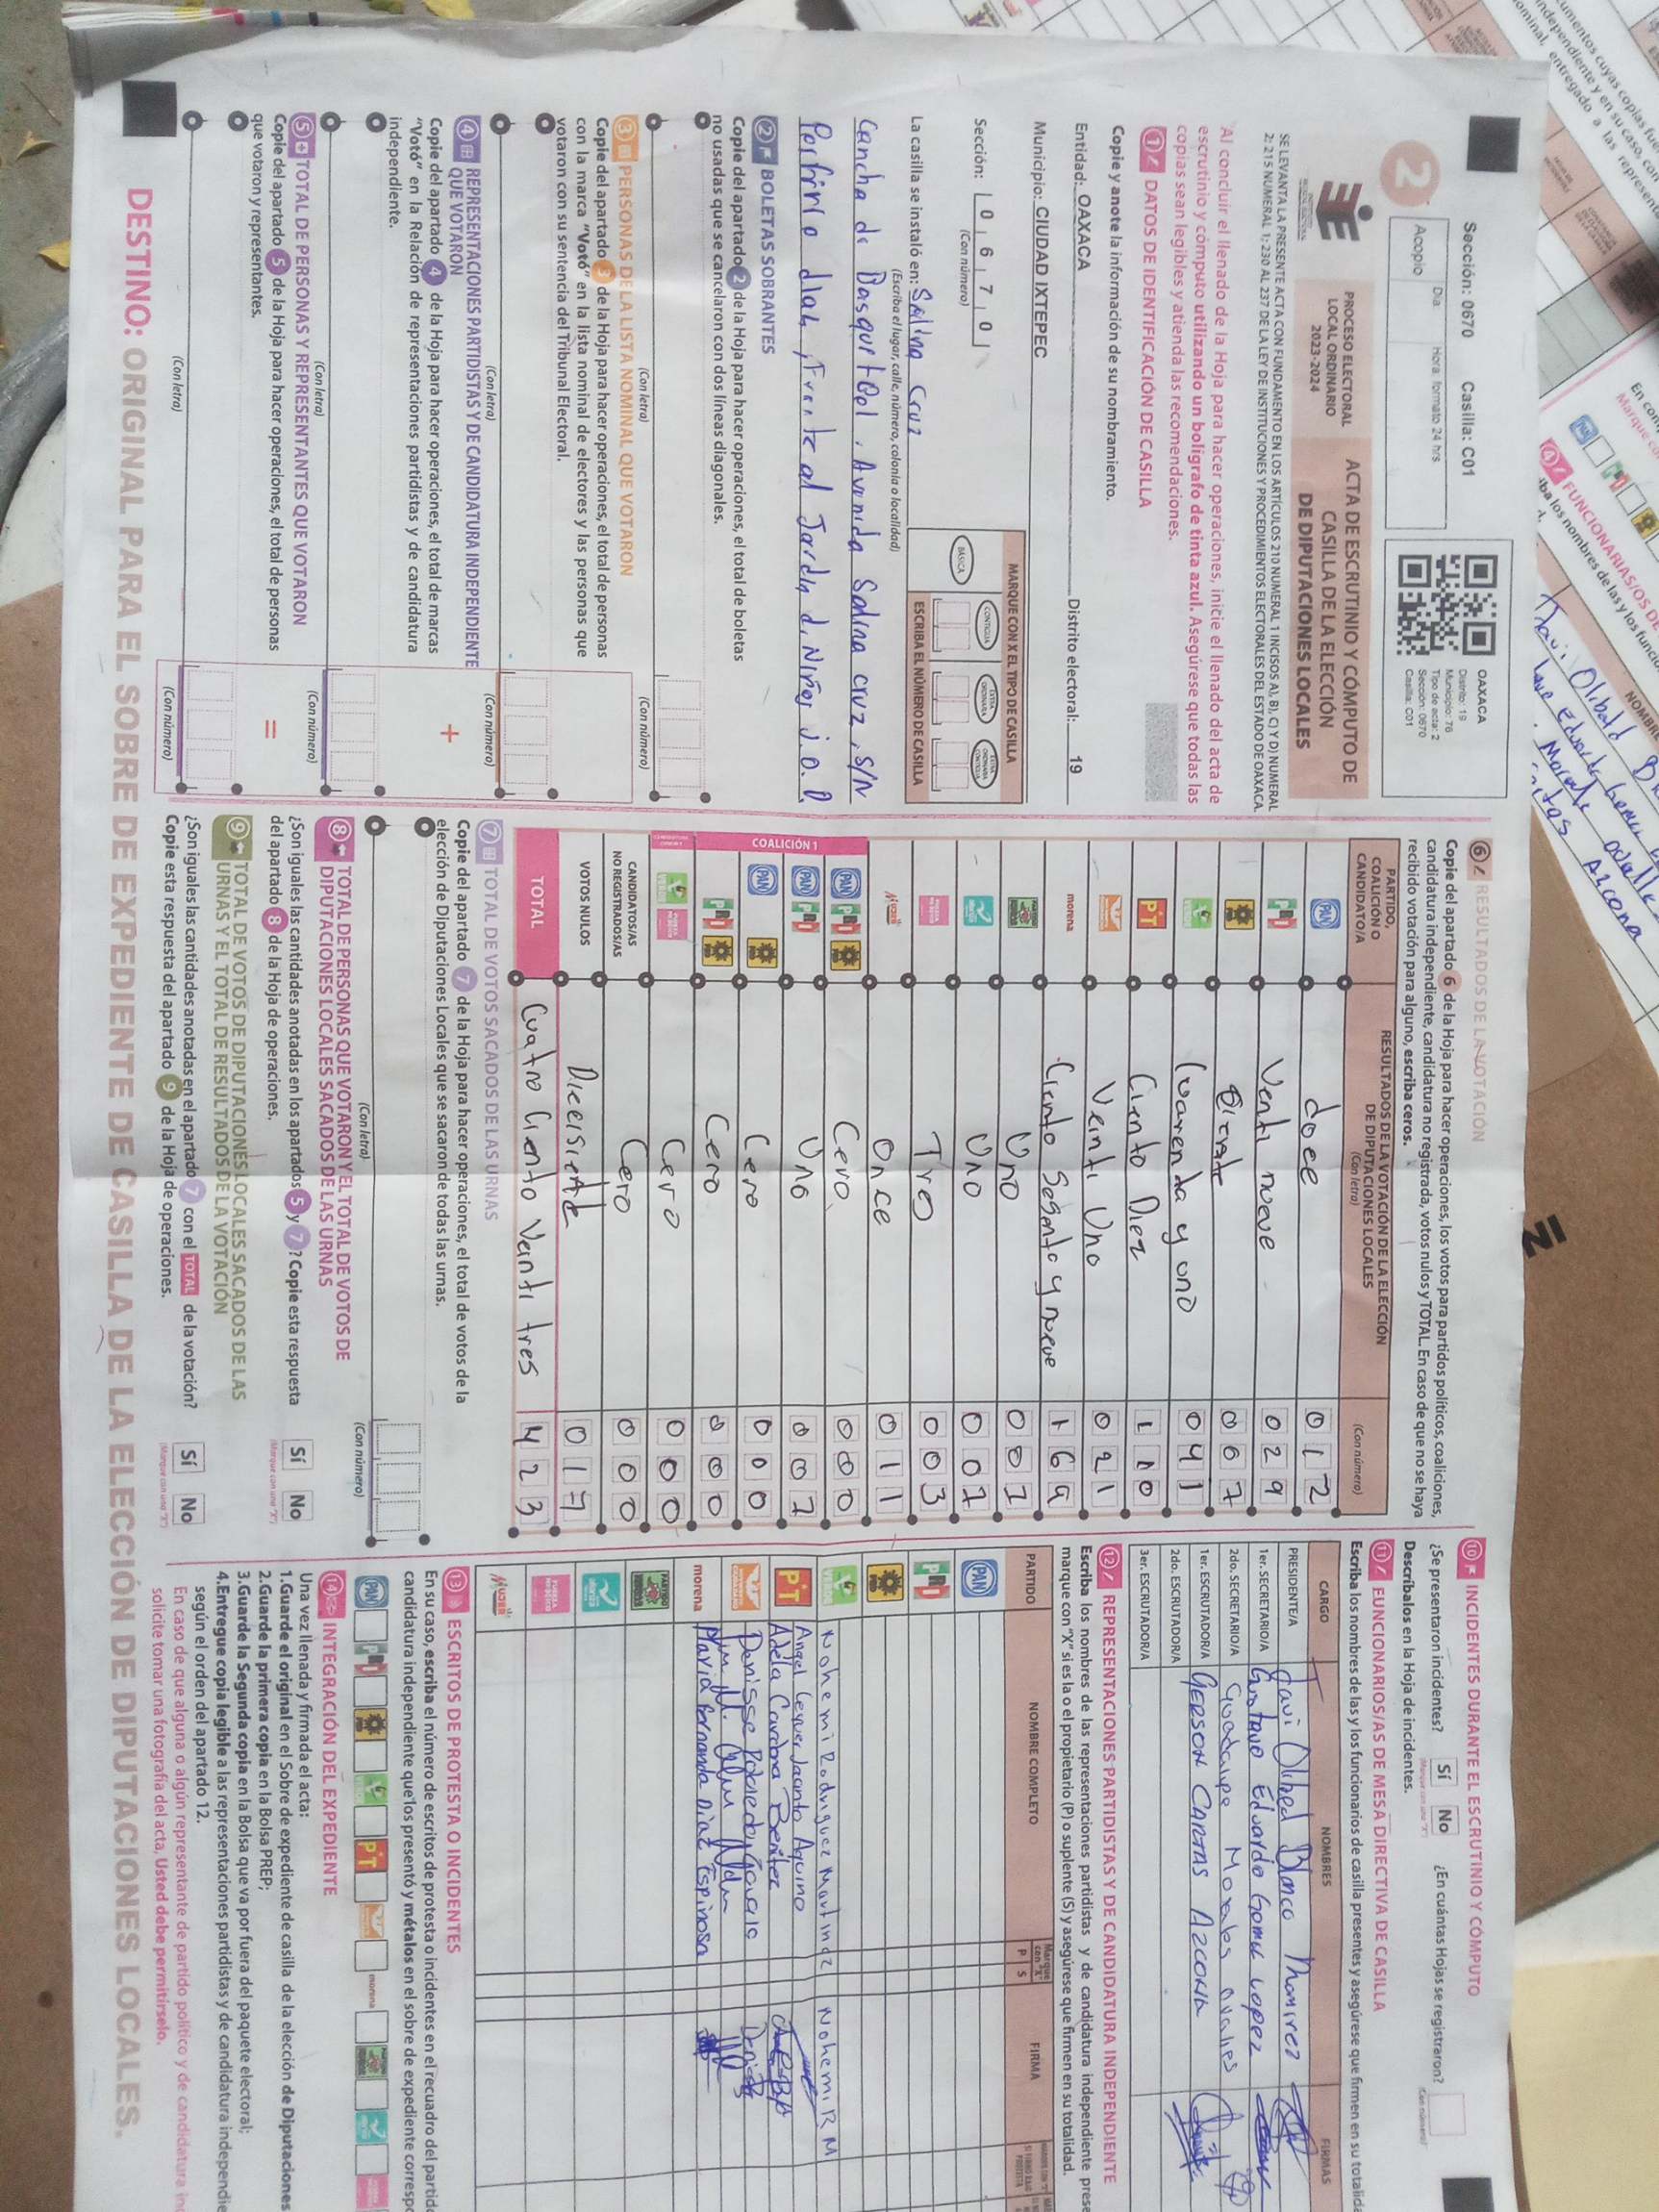 Sección: 0670 Casilla: C01
Día: Hora: formato 24 hrs.
Acopio
OAXACA
Distrito: 19
Municipio: 76
Tipo de acta: 2
Sección: 0670
Casilla: C01
2
PROCESO ELECTORAL
LOCAL ORDINARIO
2023-2024
ACTA DE ESCRUTINIO Y CÓMPUTO DE
CASILLA DE LA ELECCIÓN
DE DIPUTACIONES LOCALES
SE LEVANTA LA PRESENTE ACTA CON FUNDAMENTO EN LOS ARTÍCULOS 210 NUMERAL 1 INCISOS A), B), C) Y D) NUMERAL
2; 215 NUMERAL 1; 230 AL 237 DE LA LEY DE INSTITUCIONES Y PROCEDIMIENTOS ELECTORALES DEL ESTADO DE OAXACA.
Al concluir el llenado de la Hoja para hacer operaciones, inicie el llenado del acta de
escrutinio y cómputo utilizando un bolígrafo de tinta azul. Asegúrese que todas las
copias sean legibles y atienda las recomendaciones.
1 DATOS DE IDENTIFICACIÓN DE CASILLA
Copie y anote la información de su nombramiento.
Entidad: OAXACA Distrito electoral: 19
Municipio: CIUDAD IXTEPEC
Sección: 0 6 7 0
(Con número)
MARQUE CON X EL TIPO DE CASILLA
BÁSICA CONTIGUA EXTRA ORDINARIA EXTRA ORDINARIA CONTIGUA
ESCRIBA EL NÚMERO DE CASILLA
La casilla se instaló en: Salina Cruz
(Escriba el lugar, calle, número, colonia o localidad)
Cancha de Basquetbol, Avenida Salina cruz, S/N
Porfirio diaz, Frente al Jardin d. Niños
2 BOLETAS SOBRANTES
Copie del apartado 2 de la Hoja para hacer operaciones, el total de boletas
no usadas que se cancelaron con dos líneas diagonales.
(Con letra) (Con número)
3 PERSONAS DE LA LISTA NOMINAL QUE VOTARON
Copie del apartado 3 de la Hoja para hacer operaciones, el total de personas
con la marca "Votó" en la lista nominal de electores y las personas que
votaron con su sentencia del Tribunal Electoral.
(Con letra) (Con número)
4 REPRESENTACIONES PARTIDISTAS Y DE CANDIDATURA INDEPENDIENTE
QUE VOTARON
Copie del apartado 4 de la Hoja para hacer operaciones, el total de marcas
"Votó" en la Relación de representaciones partidistas y de candidatura
independiente.
(Con letra) (Con número)
5 TOTAL DE PERSONAS Y REPRESENTANTES QUE VOTARON
Copie del apartado 5 de la Hoja para hacer operaciones, el total de personas
que votaron y representantes.
(Con letra) (Con número)
6 RESULTADOS DE LA VOTACIÓN
Copie del apartado 6 de la Hoja para hacer operaciones, los votos para partidos políticos, coaliciones,
candidatura independiente, candidatura no registrada, votos nulos y TOTAL. En caso de que no se haya
recibido votación para alguno, escriba ceros.
PARTIDO, COALICIÓN O CANDIDATO/A
RESULTADOS DE LA VOTACIÓN DE LA ELECCIÓN DE DIPUTACIONES LOCALES (Con letra)
(Con número)
PAN doce 0 1 2
PRI Venti nueve 0 2 9
PRD 0 6 7
VERDE Cuarenda y uno 0 4 1
PT Ciento Diez 1 1 0
Veinti Uno 0 2 1
morena Ciento Sesenta y nueve 1 6 9
Uno 0 0 1
Uno 0 0 1
Tres 0 0 3
MUJER Once 0 1 1
COALICIÓN 1
PAN PRI PRD Cero 0 0 0
PAN PRI Uno 0 0 1
PAN PRD Cero 0 0 0
PRI PRD Cero 0 0 0
VERDE Cero 0 0 0
CANDIDATOS/AS NO REGISTRADOS/AS Cero 0 0 0
VOTOS NULOS Diceisiente 0 1 7
TOTAL Cuatro Ciento Veinti tres 4 2 3
7 TOTAL DE VOTOS SACADOS DE LAS URNAS
Copie del apartado 7 de la Hoja para hacer operaciones, el total de votos de la
elección de Diputaciones Locales que se sacaron de todas las urnas.
(Con letra) (Con número)
8 TOTAL DE PERSONAS QUE VOTARON Y EL TOTAL DE VOTOS DE
DIPUTACIONES LOCALES SACADOS DE LAS URNAS
¿Son iguales las cantidades anotadas en los apartados 5 y 7? Copie esta respuesta
del apartado 8 de la Hoja de operaciones.
Sí No
(Marque con una "X")
9 TOTAL DE VOTOS DE DIPUTACIONES LOCALES SACADOS DE LAS
URNAS Y EL TOTAL DE RESULTADOS DE LA VOTACIÓN
¿Son iguales las cantidades anotadas en el apartado 7 con el TOTAL de la votación?
Copie esta respuesta del apartado 9 de la Hoja de operaciones.
Sí No
(Marque con una "X")
10 INCIDENTES DURANTE EL ESCRUTINIO Y CÓMPUTO
¿Se presentaron incidentes? Sí No ¿En cuántas Hojas se registraron?
(Marque con una "X") (Con número)
Descríbalos en la Hoja de incidentes.
11 FUNCIONARIOS/AS DE MESA DIRECTIVA DE CASILLA
Escriba los nombres de las y los funcionarios de casilla presentes y asegúrese que firmen en su totalida
CARGO NOMBRES FIRMAS
PRESIDENTE/A Blanco Ramirez
1er. SECRETARIO/A Gustavo Eduardo Gomez Lopez
2do. SECRETARIO/A Guadalupe Morales Ovalles
1er. ESCRUTADOR/A GERSON CARTAS AZCONA
2do. ESCRUTADOR/A
3er. ESCRUTADOR/A
12 REPRESENTACIONES PARTIDISTAS Y DE CANDIDATURA INDEPENDIENTE
Escriba los nombres de las representaciones partidistas y de candidatura independiente prese
marque con "X" si es la o el propietario (P) o suplente (S) y asegúrese que firmen en su totalidad.
PARTIDO NOMBRE COMPLETO Marque con "X" P S FIRMA
PAN
PRI
PRD
VERDE Nohemi Rodriguez Martinez Nohemi R M
PT Angel Jacinto Aquino
Adela Benitez
Denisse
morena Maria Fernanda Diaz Espinosa
MUJER
13 ESCRITOS DE PROTESTA O INCIDENTES
En su caso, escriba el número de escritos de protesta o incidentes en el recuadro del partido
candidatura independiente que los presentó y métalos en el sobre de expediente corresp
PAN PRI PRD VERDE PT morena
14 INTEGRACIÓN DEL EXPEDIENTE
Una vez llenada y firmada el acta:
1.Guarde el original en el Sobre de expediente de casilla de la elección de Diputaciones
2.Guarde la primera copia en la Bolsa PREP;
3.Guarde la Segunda copia en la Bolsa que va por fuera del paquete electoral;
4.Entregue copia legible a las representaciones partidistas y de candidatura independie
según el orden del apartado 12.
En caso de que alguna o algún representante de partido político y de candidatura in
solicite tomar una fotografía del acta, Usted debe permitírselo.
DESTINO: ORIGINAL PARA EL SOBRE DE EXPEDIENTE DE CASILLA DE LA ELECCIÓN DE DIPUTACIONES LOCALES.